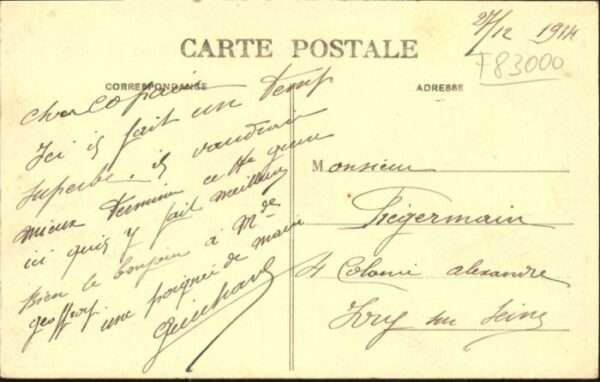 27/12 1914
F83000
CARTE POSTALE
CORRESPONDANCE
ADRESSE
cher copain
Ici il fait un temp
superbe. il vaudrai
mieux terminer cette guerre
ici quis y fait meilleur
Bien le bonjour à Mde
Geoffroy. une poignée de main
Guichard
Monsieur
Fregermain
4 Colonie alexandre
Ivry sur Seine